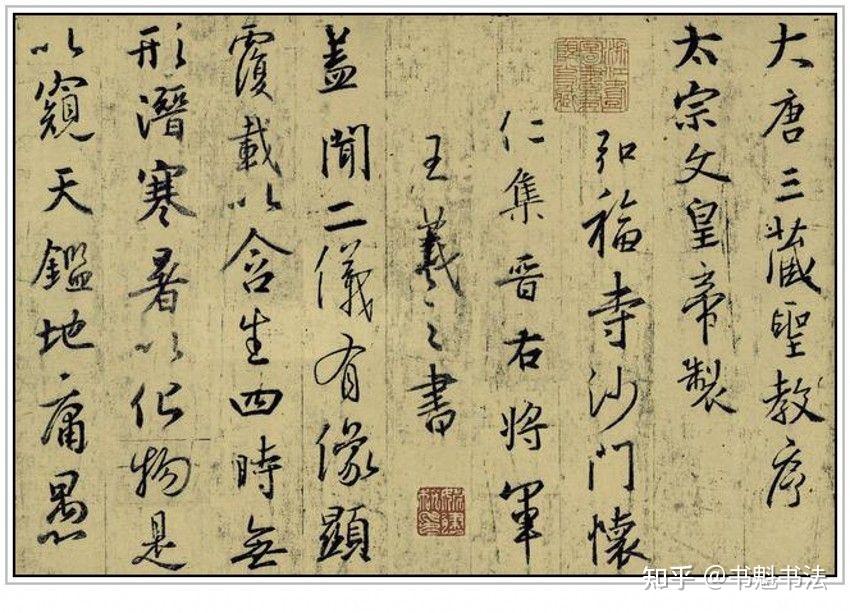 大唐三藏聖教序
太宗文皇帝製
弘福寺沙門懷
仁集晉右將軍
王羲之書
蓋聞二儀有像顯
覆載以含生四時無
形潛寒暑以化物是
以窺天鑑地庸愚
知乎 @书魁书法